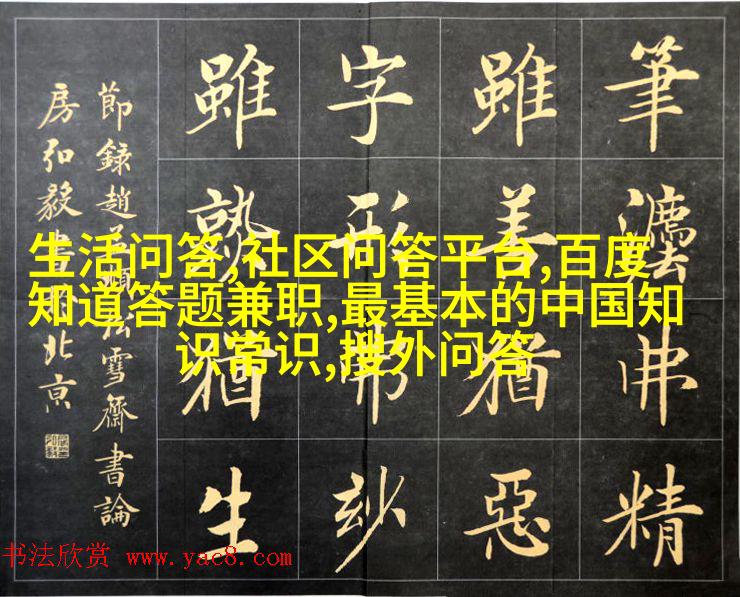 筆灋弗精
雖善猶惡
字形弗妙
雖熟猶生
節錄趙孟頫松雪齋書論
房弘毅書於北京
生活问答,社区问答平台,百度
知道答题兼职,最基本的中国知
识常识,搜外问答
书法欣赏 www.yac8.com